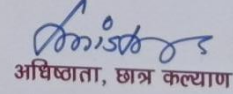 अधिष्ठाता, छात्र कल्याण